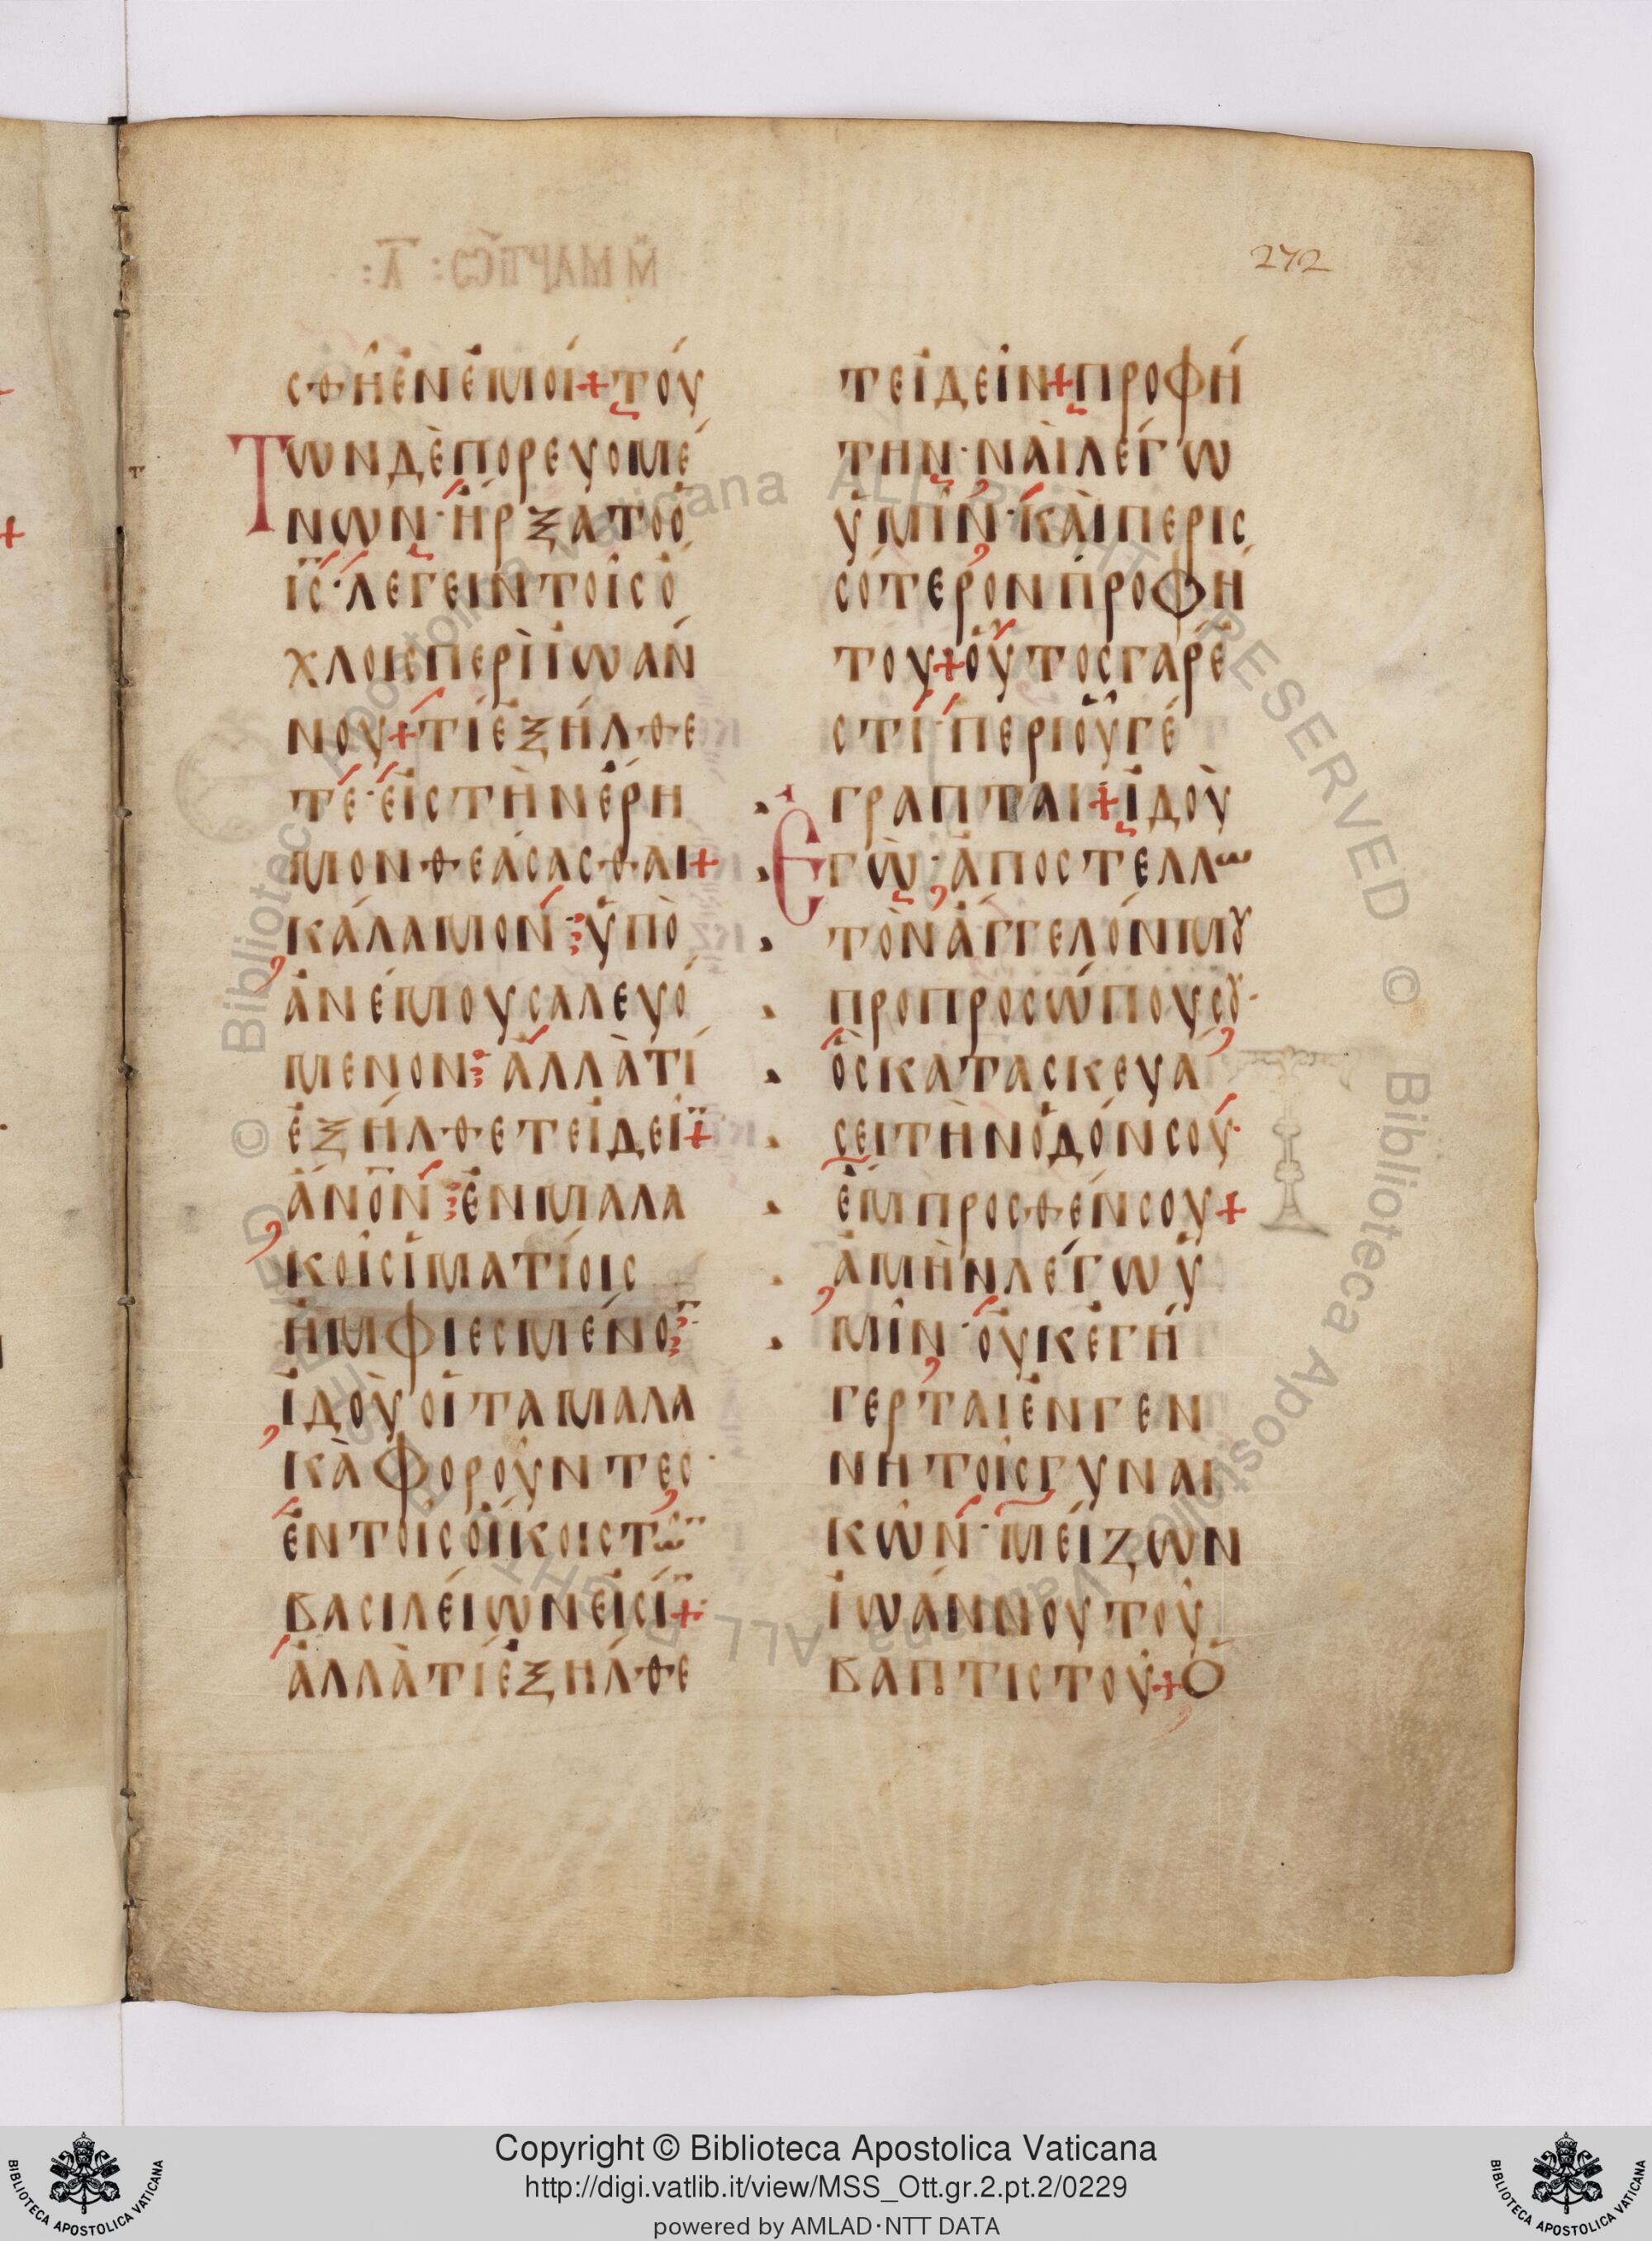 272
σθῇ ἐν ἐμοί + Τού
των δὲ πορευομέ
νων· ἤρξατο ὁ
ι̅ς̅· λέγειν τοῖς ὄ
χλοις περὶ ἰωάν
νου + τί ἐξήλθε
τε· εἰς τὴν ἔρη
μον θεάσασθαι +
κάλαμον· ὑπὸ
ἀνέμου σαλευό
μενον· ἀλλὰ τί
ἐξήλθετε ἰδεῖ̅ +
ἄν̅ο̅ν· ἐν μαλα
κοῖς ἱματίοις
ἠμφιεσμένο̅·
ἰδοὺ οἱ τὰ μαλα
κὰ φοροῦντες·
ἐν τοῖς οἴκοις τῶ̅
βασιλείων εἰσί̅ +
ἀλλὰ τί ἐξήλθε
τε ἰδεῖν + προφή
την· ναὶ λέγω
ὑμῖν· καὶ περισ
σότερον προφή
του + οὗτος γάρ ἐ
στί· περὶ οὗ γέ
γραπται + ἰδοὺ
Ἐγὼ· ἀποστέλλω
τὸν ἄγγελόν μου
προ προσώπου σου·
ὃς κατασκευά
σει τὴν ὁδόν σου·
ἔμπροσθέν σου +
ἀμὴν λέγω ὑ
μῖν· οὐκ ἐγή
γερται ἐν γεν
νητοῖς γυναι
κῶν· μείζων
ἰωάννου τοῦ
βαπτιστοῦ + Ὁ
Copyright © Biblioteca Apostolica Vaticana
http://digi.vatlib.it/view/MSS_Ott.gr.2.pt.2/0229
powered by AMLAD·NTT DATA
BIBLIOTECA APOSTOLICA VATICANA
BIBLIOTECA APOSTOLICA VATICANA